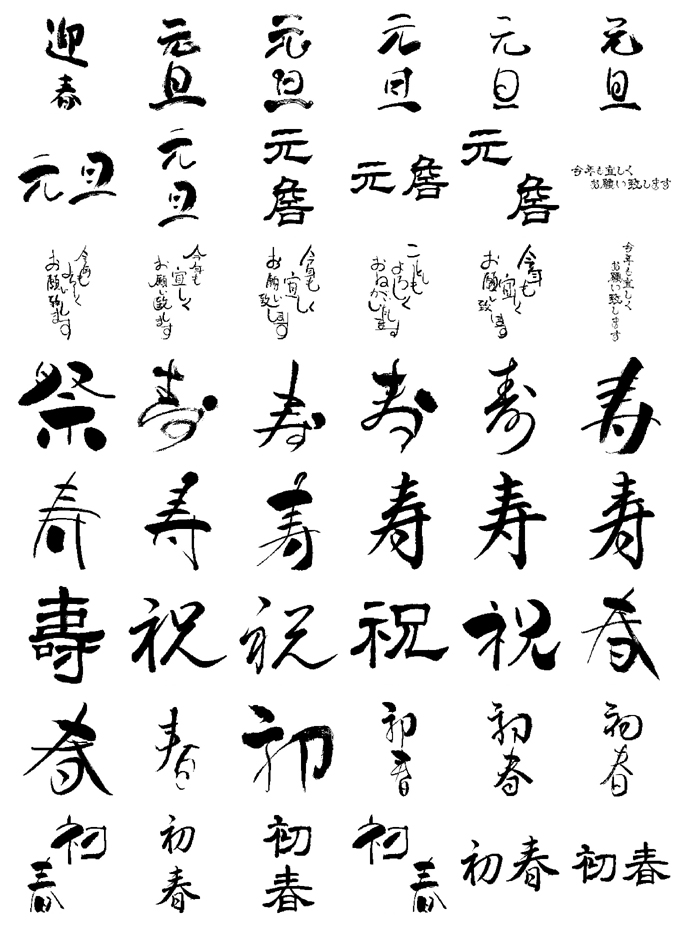 迎春
元旦
元旦
元旦
元旦
元旦
元旦
元旦
元詹
元詹
元詹
今年も宜しく
お願い致します
今年も
よろしく
お願い致します
今年も
宜しく
お願い致します
今年も
宜しく
お願い致します
ことしも
よろしく
おねがい致します
今年も
宜しく
お願い致します
今年も宜しく
お願い致します
祭
寿
寿
寿
寿
寿
寿
寿
寿
寿
寿
寿
壽
祝
祝
祝
祝
春
春
春
初
初春
初春
初春
初春
初春
初春
初春
初春
初春